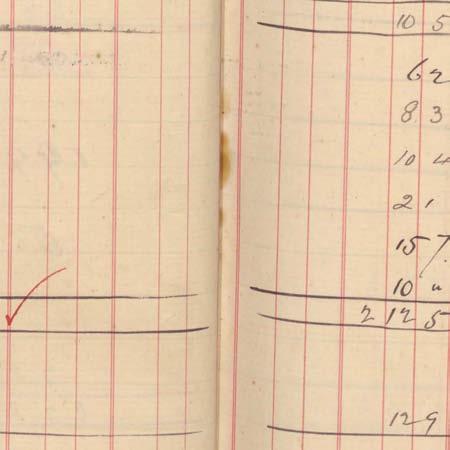 10 5
6 2
8 3
10 4
2 1
15 7
10 "
2 12 5
12 9